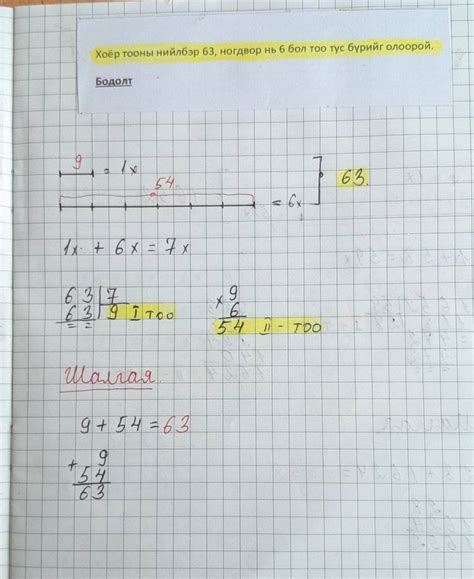 Хоёр тооны нийлбэр 63, ногдвор нь 6 бол тоо тус бүрийг олоорой.
Бодолт
9 = 1x
54
= 6x
63.
1x + 6x = 7x
63 | 7
63 | 9 I тоо
× 9
6
54 II - тоо
Шалгая.
9 + 54 = 63
+ 9
54
63